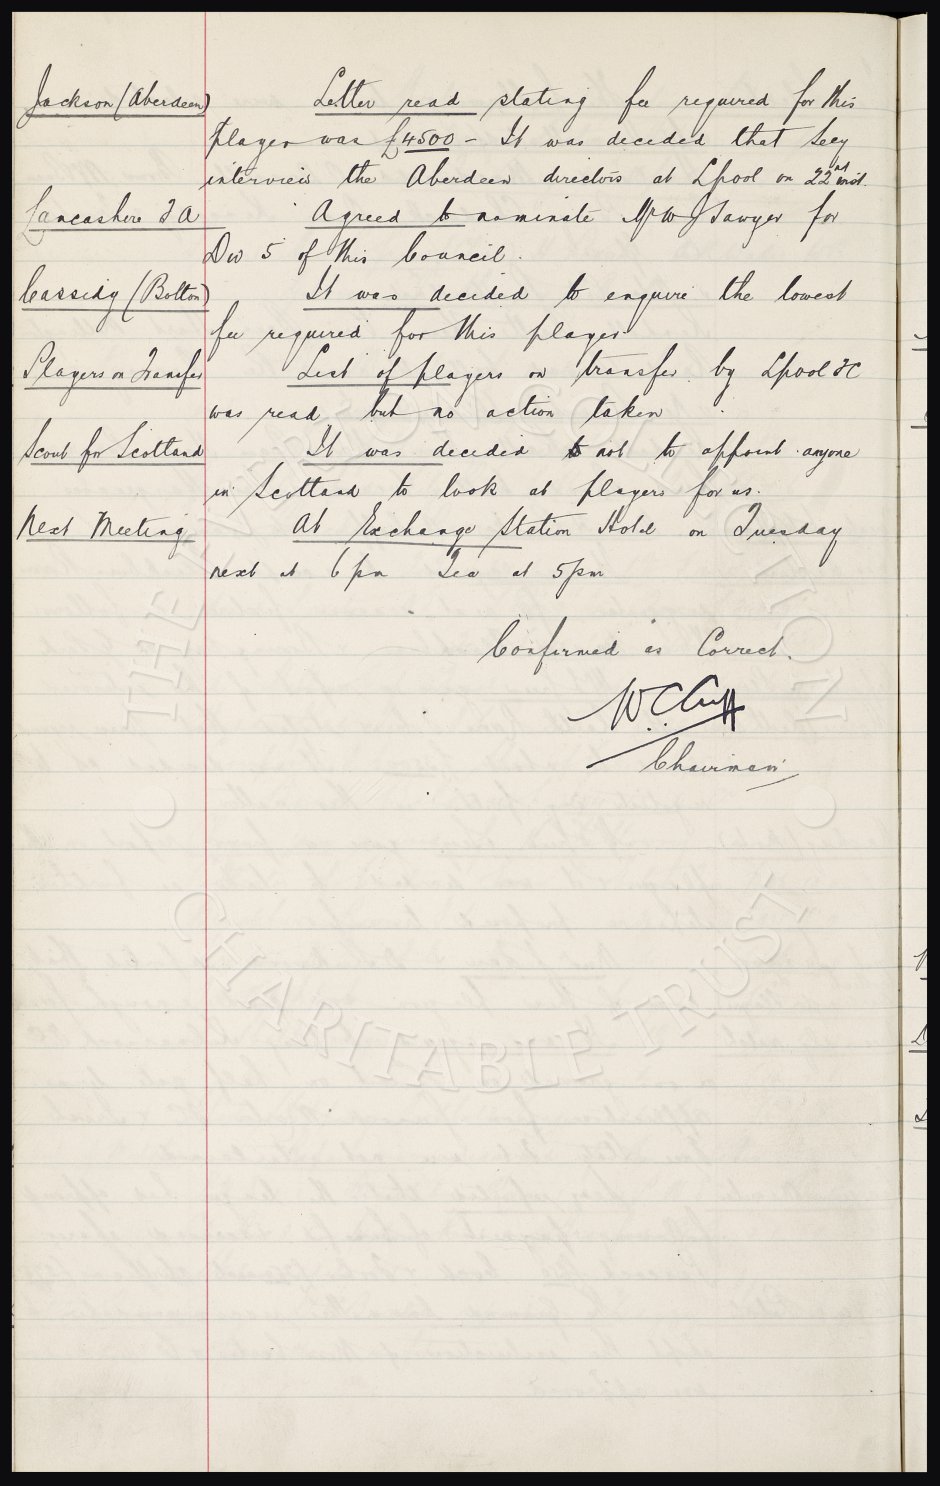 Jackson (Aberdeen) Letter read stating fee required for this
player was £4500 - It was decided that Secy
interview the Aberdeen directors at Lpool on 22nd inst.
Lancashire F A Agreed to nominate Mr W J Sawyer for
Div 5 of this Council.
Cassidy (Bolton) It was decided to enquire the lowest
fee required for this player
Players on Transfer List of players on transfer by Lpool FC
was read but no action taken.
Scout for Scotland It was decided not to appoint anyone
in Scotland to look at players for us.
Next Meeting At Exchange Station Hotel on Tuesday
next at 6 pm Tea at 5 pm
Confirmed as Correct.
W C Cuff
Chairman
THE EVERTON COLLECTION
CHARITABLE TRUST